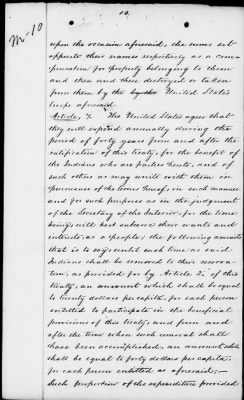 10.
M-10
upon the occasion aforesaid, the sums set
opposite their names respectively as a com-
pensation for property belonging to them
and then and there destroyed or taken
from them by the United States
troops aforesaid.
Article, 7. The United States agree that
they will expend annually during the
period of forty years from and after the
ratification of this treaty, for the benefit of
the Indians who are parties hereto, and of
such others as may unite with them in
pursuance of the terms hereof, in such manner
and for such purposes as in the judgment
of the Secretary of the Interior, for the time
being, will best subserve their wants and
interests as a people, the following amounts
that is to say: until such time as said
Indians shall be removed to their reserva-
tion, as provided for by Article 2, of this
treaty, an amount which shall be equal
to twenty dollars per capita, for each person
entitled to participate in the beneficial
provisions of this treaty; and from and
after the time when such removal shall
have been accomplished, an amount which
shall be equal to forty dollars per capita
for each person entitled as aforesaid;—
Such proportion of the expenditure provided